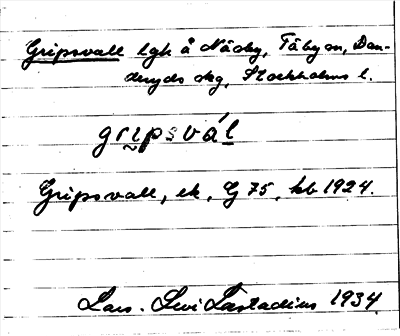 Gripsvall lgh å Näsby, Täby sn, Dan-
deryds skg, Stockholms l.
gripsvál
Gripsvall, ek, G 75, kb 1924.
Lars-Levi Læstadius 1934.